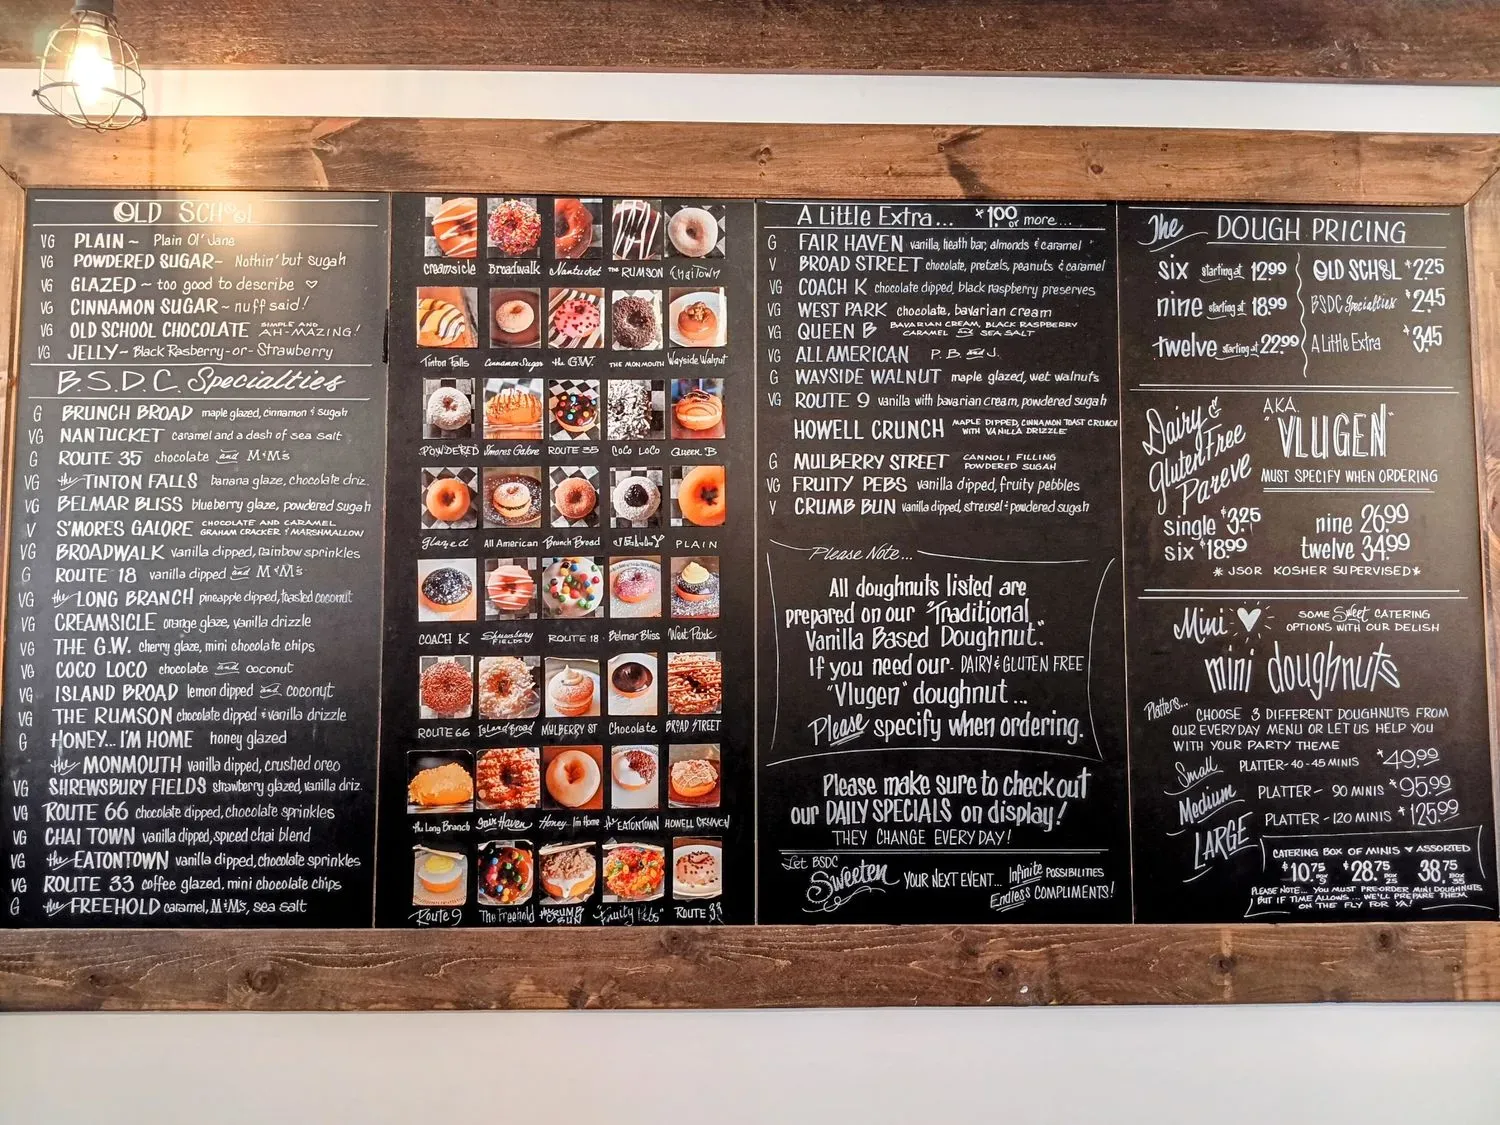 OLD SCHOOL
VG PLAIN ~ Plain Ol' Jane
VG POWDERED SUGAR ~ Nothin' but sugah
VG GLAZED ~ too good to describe ♡
VG CINNAMON SUGAR ~ nuff said!
VG OLD SCHOOL CHOCOLATE SIMPLE AND AH-MAZING!
VG JELLY ~ Black Rasberry - or - Strawberry
B.S.D.C. Specialties
G BRUNCH BROAD maple glazed, cinnamon & sugah
VG NANTUCKET caramel and a dash of sea salt
G ROUTE 35 chocolate and M&M's
VG the TINTON FALLS banana glaze, chocolate driz.
VG BELMAR BLISS blueberry glaze, powdered sugah
V S'MORES GALORE CHOCOLATE AND CARAMEL GRAHAM CRACKER & MARSHMALLOW
VG BROADWALK vanilla dipped, rainbow sprinkles
G ROUTE 18 vanilla dipped and M&M's
VG the LONG BRANCH pineapple dipped, toasted coconut
VG CREAMSICLE orange glaze, vanilla drizzle
VG THE G.W. cherry glaze, mini chocolate chips
VG COCO LOCO chocolate and coconut
VG ISLAND BROAD lemon dipped and coconut
VG THE RUMSON chocolate dipped & vanilla drizzle
G HONEY... I'M HOME honey glazed
the MONMOUTH vanilla dipped, crushed oreo
VG SHREWSBURY FIELDS strawberry glazed, vanilla driz.
VG ROUTE 66 chocolate dipped, chocolate sprinkles
VG CHAI TOWN vanilla dipped, spiced chai blend
VG the EATONTOWN vanilla dipped, chocolate sprinkles
VG ROUTE 33 coffee glazed, mini chocolate chips
G the FREEHOLD caramel, M&M's, sea salt
Creamsicle Broadwalk Nantucket THE RUMSON Chai Town
Tinton Falls Cinnamon Sugar the G.W. THE MONMOUTH Wayside Walnut
POWDERED S'mores Galore ROUTE 35 CoCo LoCo Queen B
glazed All American Brunch Broad JELLY PLAIN
COACH K Shrewsbury FIELDS ROUTE 18 Belmar Bliss West Park
ROUTE 66 Island Broad MULBERRY ST Chocolate BROAD STREET
the Long Branch Fair Haven Honey... I'm Home the EATONTOWN HOWELL CRUNCH
Route 9 The Freehold the CRUMB BUN "Fruity Pebs" ROUTE 33
A Little Extra... $1.00 or more...
G FAIR HAVEN vanilla, heath bar, almonds & caramel
V BROAD STREET chocolate, pretzels, peanuts & caramel
VG COACH K chocolate dipped, black raspberry preserves
VG WEST PARK chocolate, bavarian cream
VG QUEEN B BAVARIAN CREAM, BLACK RASPBERRY CARAMEL and SEA SALT
VG ALL AMERICAN P.B. and J.
G WAYSIDE WALNUT maple glazed, wet walnuts
VG ROUTE 9 vanilla with bavarian cream, powdered sugah
HOWELL CRUNCH MAPLE DIPPED, CINNAMON TOAST CRUNCH WITH VANILLA DRIZZLE
G MULBERRY STREET CANNOLI FILLING POWDERED SUGAH
VG FRUITY PEBS vanilla dipped, fruity pebbles
V CRUMB BUN vanilla dipped, streusel & powdered sugah
Please Note...
All doughnuts listed are
prepared on our "Traditional
Vanilla Based Doughnut."
If you need our DAIRY & GLUTEN FREE
"Vlugen" doughnut...
Please specify when ordering.
Please make sure to check out
our DAILY SPECIALS on display!
THEY CHANGE EVERY DAY!
Let BSDC
Sweeten YOUR NEXT EVENT... Infinite POSSIBILITIES
Endless COMPLIMENTS!
The DOUGH PRICING
six starting at 12.99
nine starting at 18.99
twelve starting at 22.99
OLD SCHOOL $2.25
BSDC Specialties $2.45
A Little Extra $3.45
Dairy &
Gluten Free
Pareve
A.K.A.
"VLUGEN"
MUST SPECIFY WHEN ORDERING
single $3.25 nine 26.99
six $18.99 twelve 34.99
* JSOR KOSHER SUPERVISED *
Mini ♥ SOME Sweet CATERING
OPTIONS WITH OUR DELISH
mini doughnuts
Platters... CHOOSE 3 DIFFERENT DOUGHNUTS FROM
OUR EVERYDAY MENU OR LET US HELP YOU
WITH YOUR PARTY THEME
Small PLATTER - 40-45 MINIS $49.99
Medium PLATTER - 90 MINIS $95.99
LARGE PLATTER - 120 MINIS $125.99
CATERING BOX OF MINIS ♥ ASSORTED
$10.75 $28.75 BOX 25 38.75 BOX 35
PLEASE NOTE... YOU MUST PRE-ORDER MINI DOUGHNUTS
BUT IF TIME ALLOWS... WE'LL PREPARE THEM
ON THE FLY FOR YA!